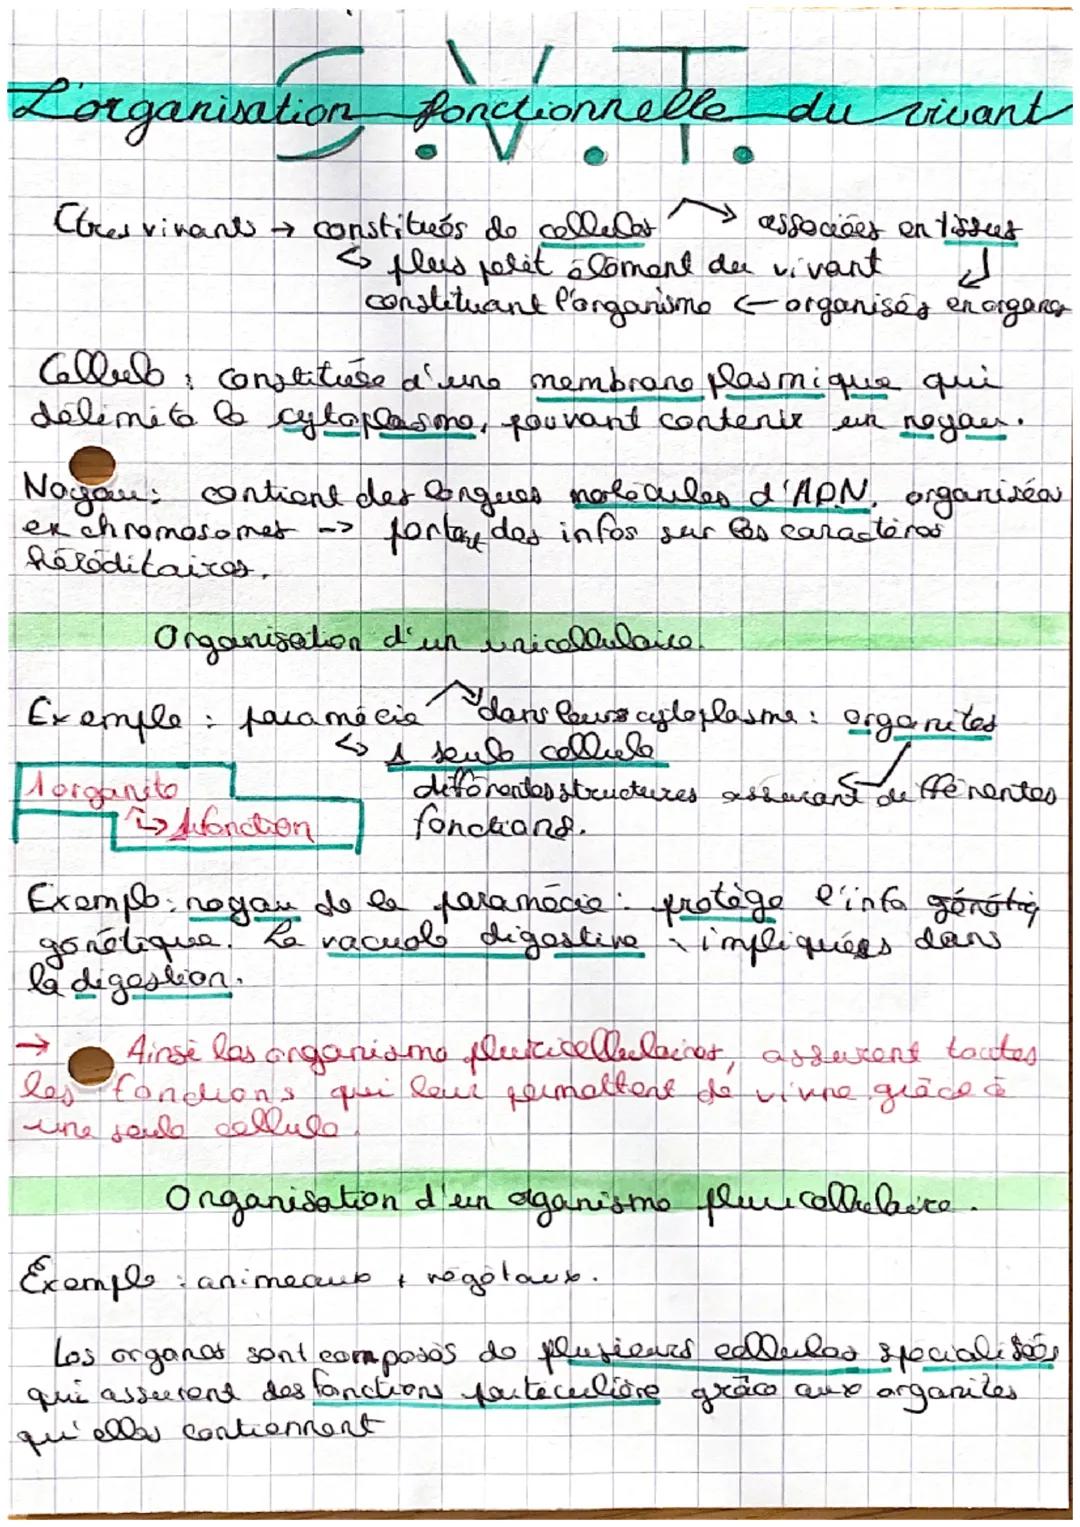 S.V.T.
L'organisation fonctionnelle du vivant
Êtres vivants → constitués de cellules → associées en tissus
↳ plus petit élément du vivant ↓
constituant l'organisme ← organisés en organes
Cellule : constituée d'une membrane plasmique qui
délimite le cytoplasme, pouvant contenir un noyau.
Noyau : contient des longues molécules d'ADN, organisées
en chromosomes --> portent des infos sur les caractères
héréditaires.
Organisation d'un unicellulaire.
Exemple : paramécie → dans leurs cytoplasme : organites
↳ 1 seule cellule
1 organite
différentes structures assurant différentes
↳ 1 fonction
fonctions.
Exemple : noyau de la paramécie : protège l'info génétiq
génétique. La vacuole digestive : impliquées dans
la digestion.
→ Ainsi les organisme pluricellulaires, assurent toutes
les fonctions qui leur permettent de vivre grâce à
une seule cellule.
Organisation d'un oganisme pluricellulaire.
Exemple : animeaux + végétaux.
Les organes sont composés de plusieurs cellules spécialisées
qui assurent des fonctions partéculière grâce aux organites
qu'elles contiennent